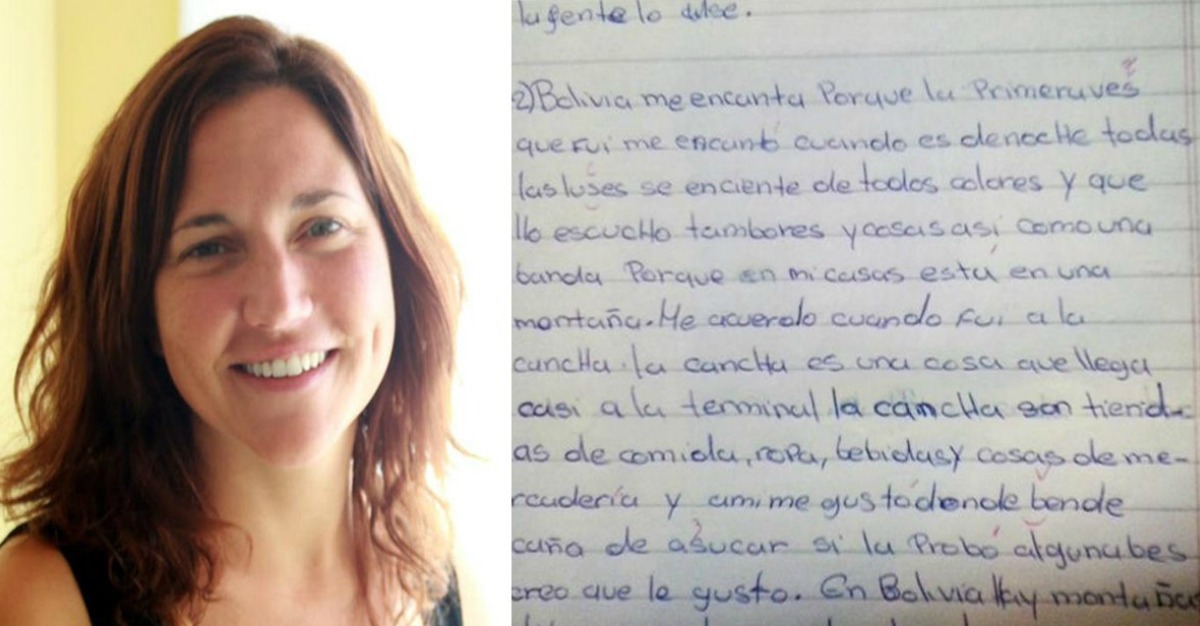 la gente lo dice.
2) Bolivia me encanta Porque la Primera ves
que fui me encantó cuando es de noche todas
las luses se enciente de todos colores y que
llo escucho tambores y cosas así como una
banda Porque en mi casas está en una
montaña. Me acuerdo cuando fui a la
cancha. la cancha es una cosa que llega
casi a la terminal la cancha son tiend-
as de comida, ropa, bebidas y cosas de me-
rcadería y a mi me gustó donde bende
caña de asucar si la Probó alguna bes
creo que le gusto. En Bolivia hay montañas